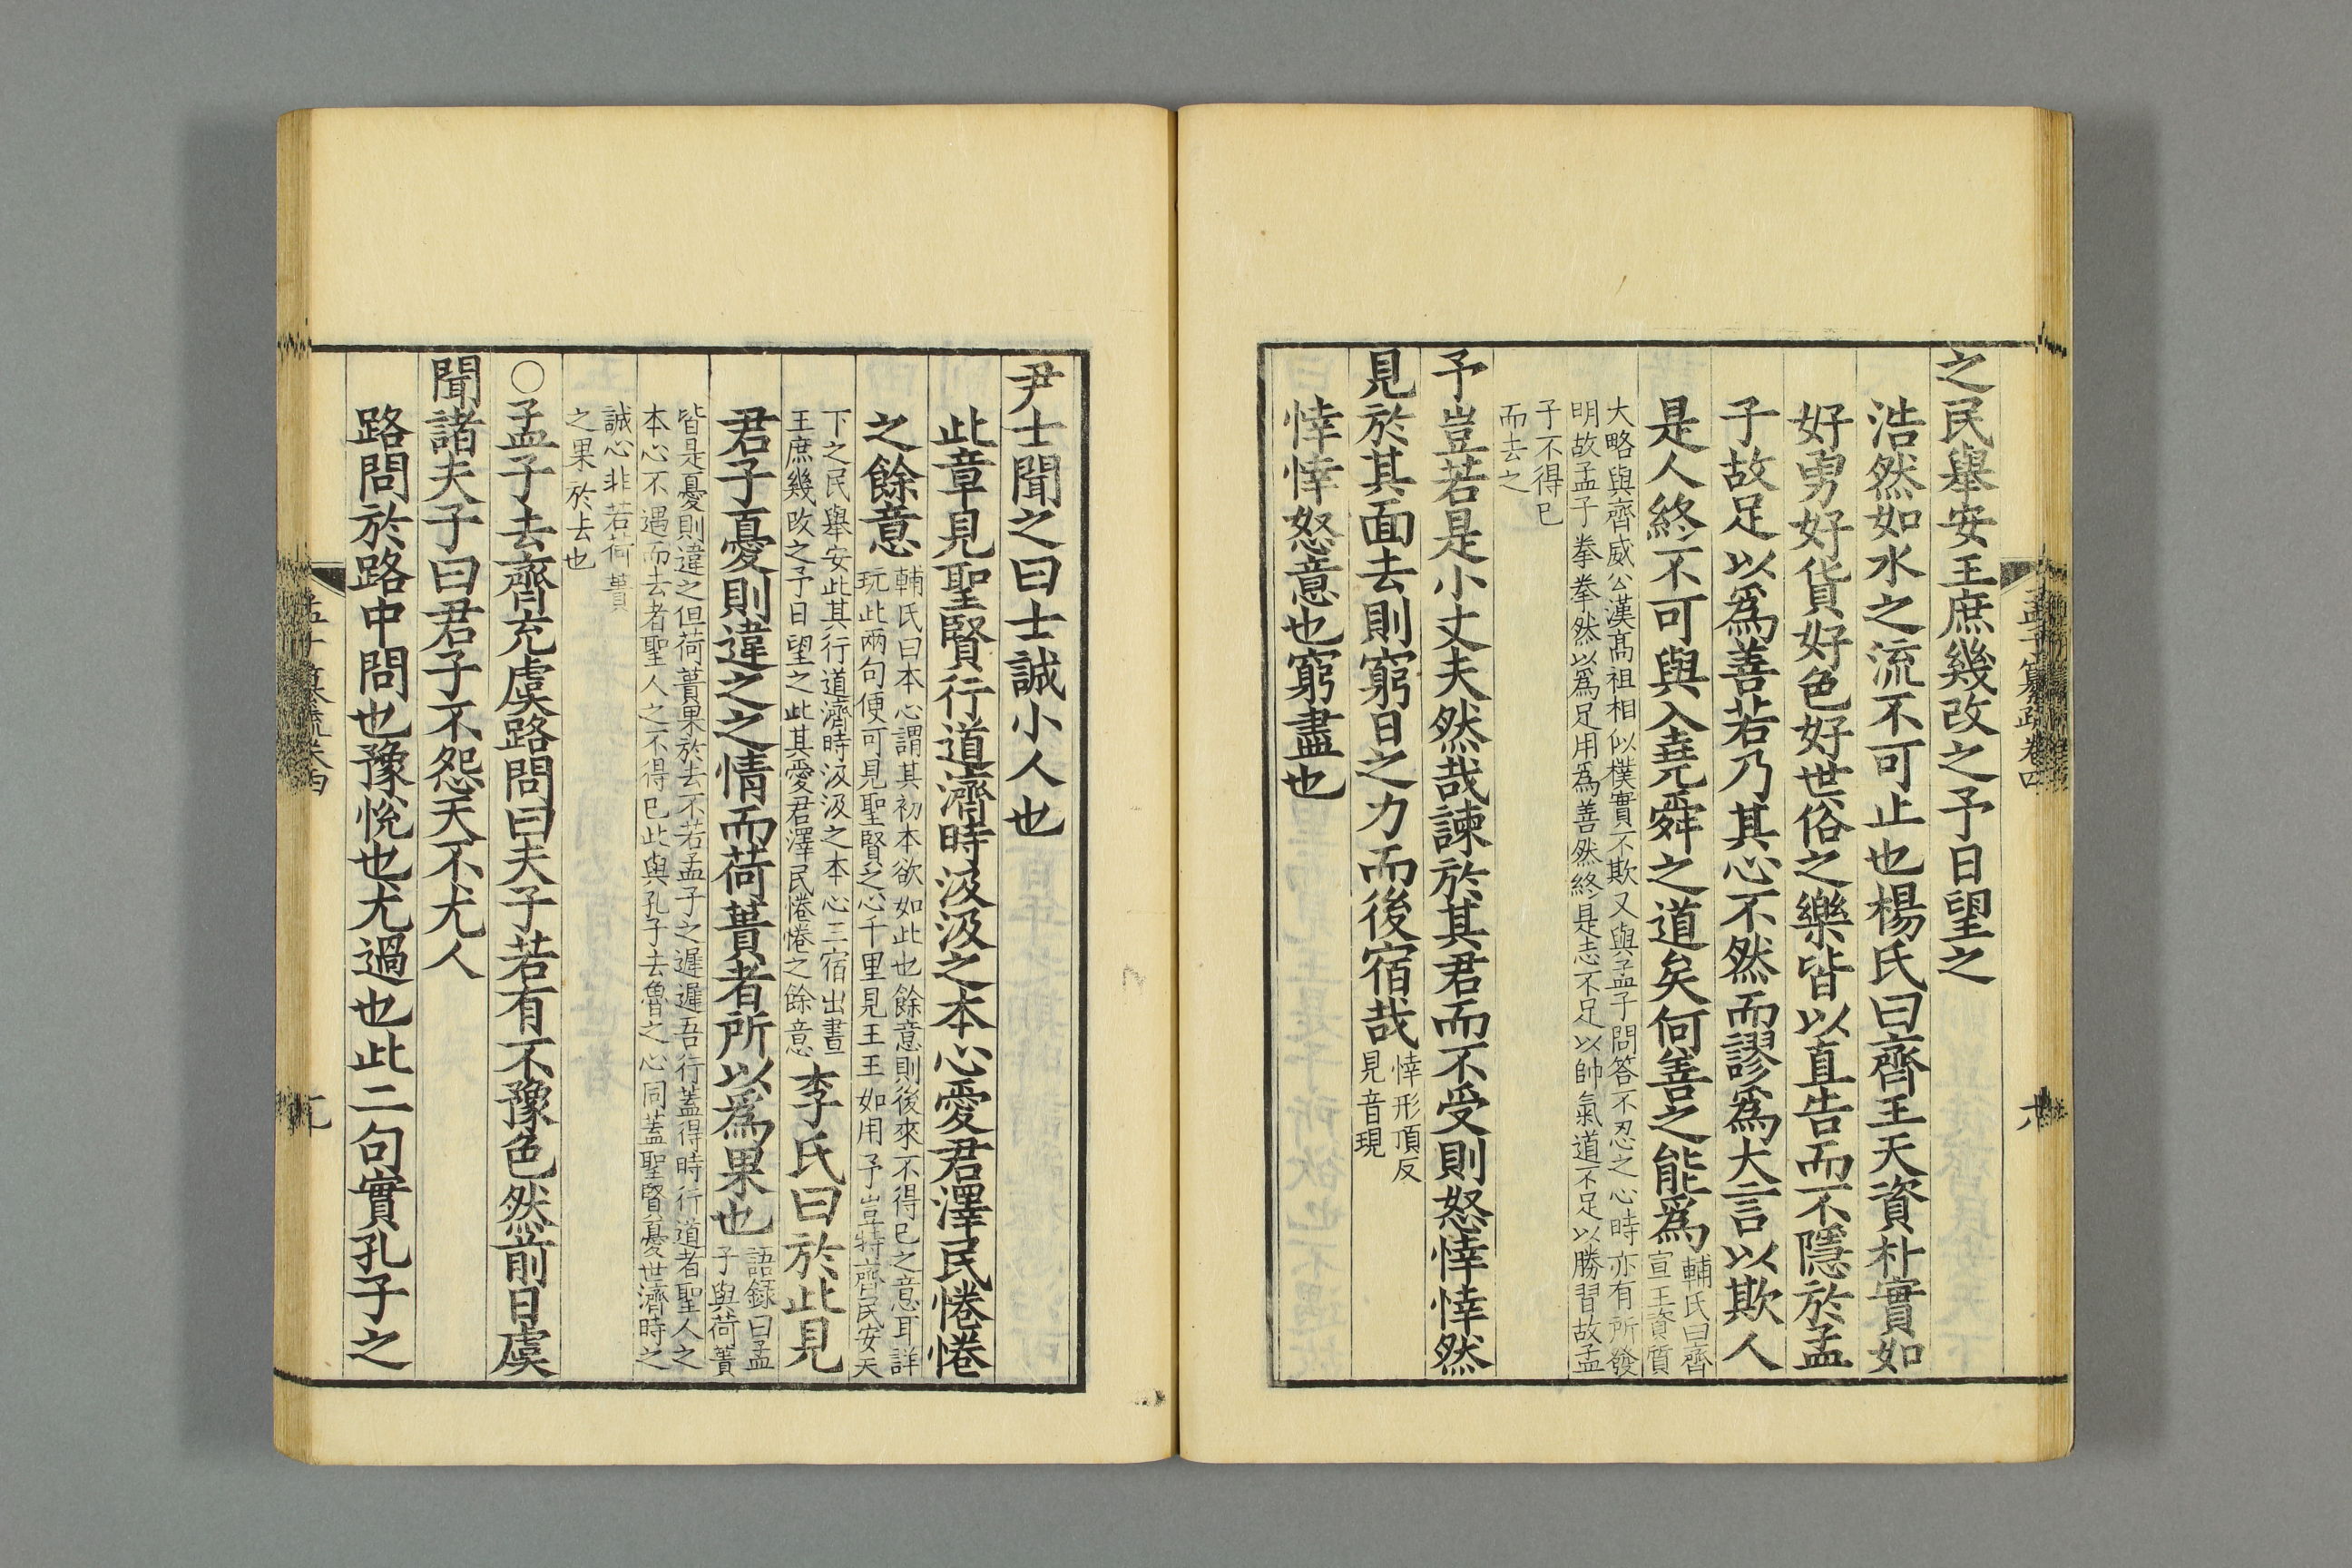 之民舉安王庶幾改之予日望之
浩然如水之流不可止也楊氏曰齊王天資朴實如
好勇好貨好色好世俗之樂皆以直告而不隱於孟
子故足以爲善若乃其心不然而謬爲大言以欺人
是人終不可與入堯舜之道矣何善之能爲
輔氏曰齊
宣王資質
大略與齊威公漢髙祖相似樸實不欺又與孟子問答不忍之心時亦有所發
明故孟子拳拳然以爲足用爲善然終是志不足以帥氣道不足以勝習故孟
子不得已
而去之
予豈若是小丈夫然哉諫於其君而不受則怒悻悻然
見於其面去則窮日之力而後宿哉
悻形頂反
見音現
悻悻怒意也窮盡也
孟子纂疏卷四
尹士聞之曰士誠小人也
此章見聖賢行道濟時汲汲之本心愛君澤民惓惓
之餘意
輔氏曰本心謂其初本欲如此也餘意則後來不得已之意耳詳
玩此兩句便可見聖賢之心千里見王王如用予豈特齊民安天
下之民舉安此其行道濟時汲汲之本心三宿出晝
王庶幾改之予日望之此其愛君澤民惓惓之餘意
李氏曰於此見
君子憂則違之之情而荷蕢者所以爲果也
語録曰孟
子與荷蕢
皆是憂則違之但荷蕢果於去不若孟子之遲遲吾行蓋得時行道者聖人之
本心不遇而去者聖人之不得已此與孔子去魯之心同蓋聖賢憂世濟時之
誠心非若荷蕢
之果於去也
○孟子去齊充虞路問曰夫子若有不豫色然前日虞
聞諸夫子曰君子不怨天不尤人
路問於路中問也豫悅也尤過也此二句實孔子之